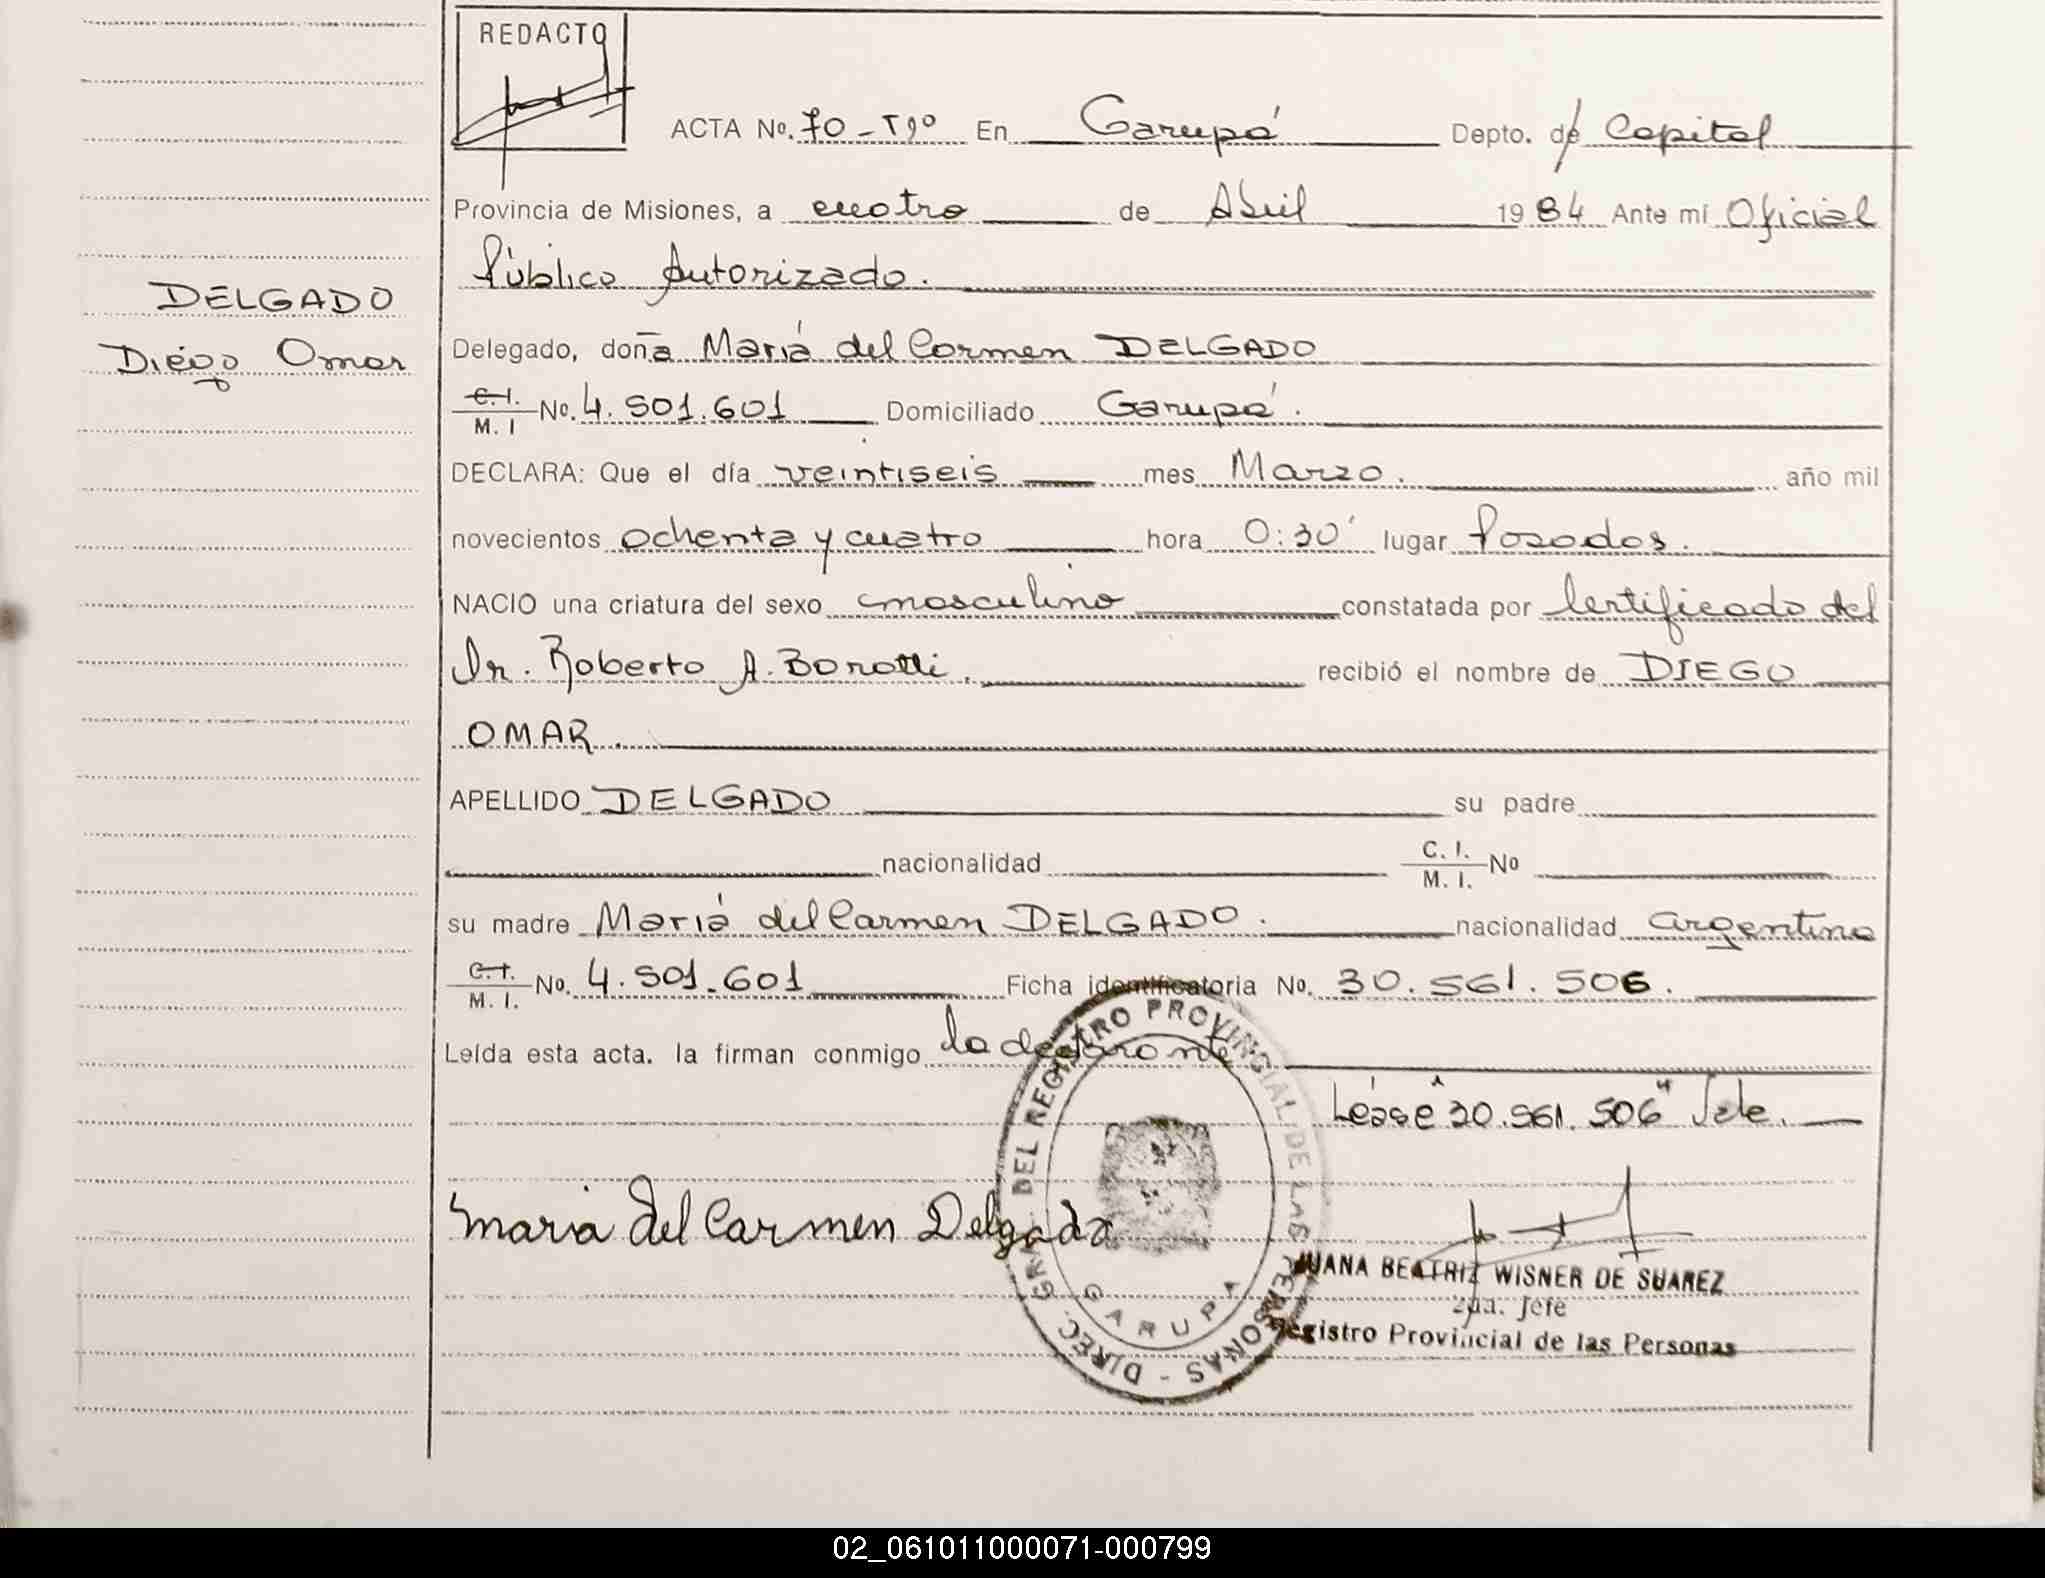 REDACTO
ACTA No. 70-Tº En Garupá Depto. de Capital
Provincia de Misiones, a cuatro de Abril 1984 Ante mí Oficial
Público Autorizado.
DELGADO
Diego Omar
Delegado, doña María del Carmen DELGADO
C.I. M. I No. 4.501.601 Domiciliado Garupá.
DECLARA: Que el día veintiseis mes Marzo. año mil
novecientos ochenta y cuatro hora 0:30' lugar Posadas.
NACIO una criatura del sexo masculino constatada por Certificado del
Dr. Roberto A. recibió el nombre de DIEGO
OMAR.
APELLIDO DELGADO su padre
nacionalidad C. I. M. I. No
su madre María del Carmen DELGADO. nacionalidad argentina
C.I. M. I. No. 4.501.601 Ficha identificatoria No. 30.561.506.
Leída esta acta. la firman conmigo la declarante
Léase "30.561.506" Vale.
Maria del Carmen Delgado
DIREC. GRAL. DEL REGISTRO PROVINCIAL DE LAS PERSONAS -
GARUPA
JUANA BEATRIZ WISNER DE SUAREZ
2da. Jefe
Registro Provincial de las Personas
02_061011000071-000799